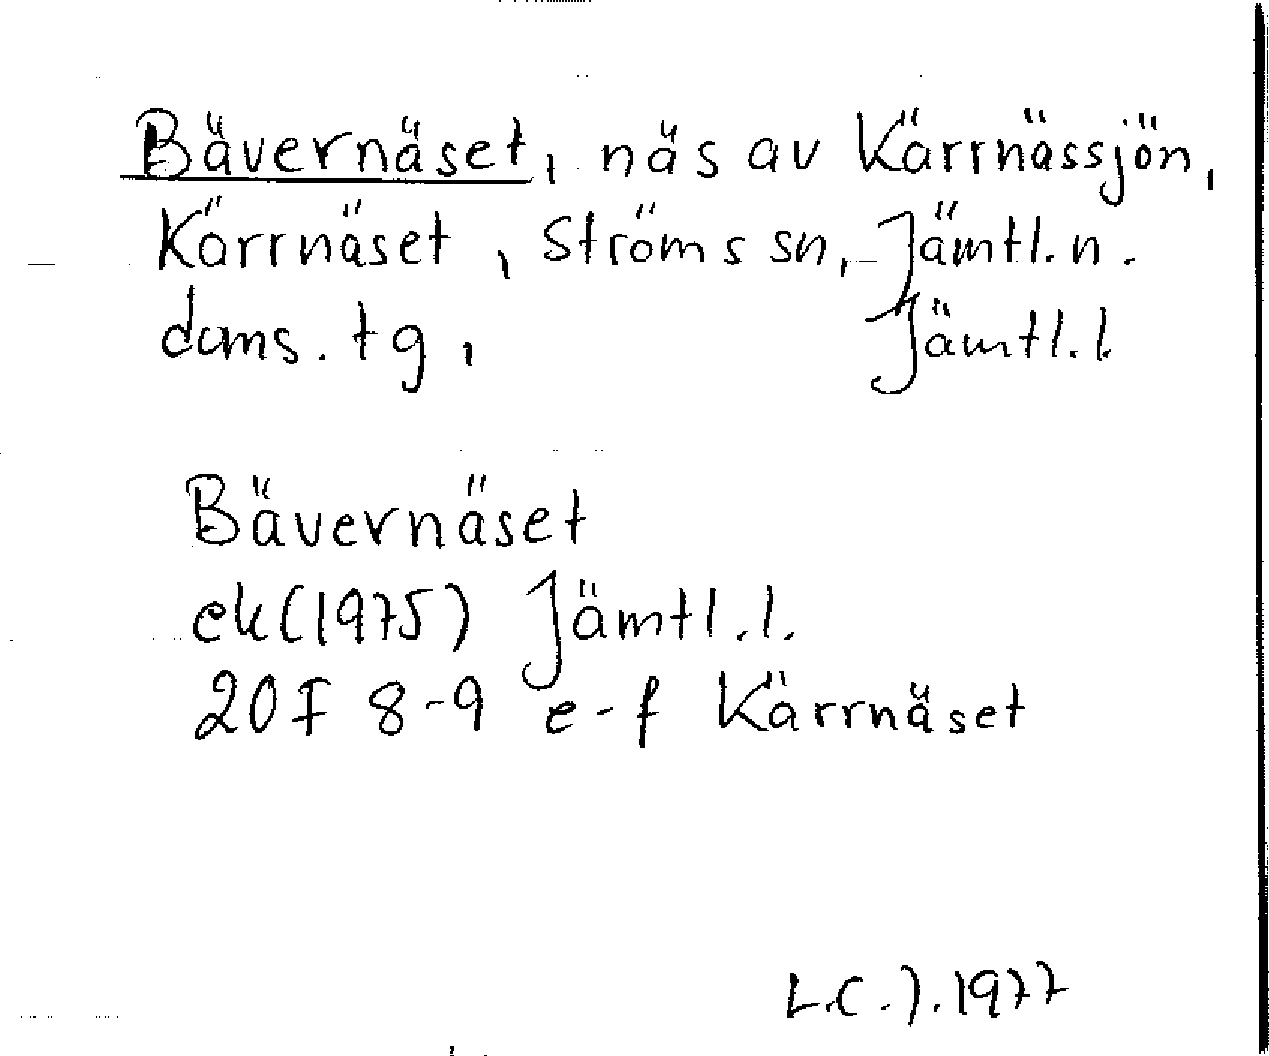 Bävernäset, näs av Kärrnässjön,
Kärrnäset, Ströms sn, Jämtl. n.
doms. tg, Jämtl. l.
Bävernäset
ek (1975) Jämtl. l.
20F 8-9 e-f Kärrnäset
L.C.J. 1977